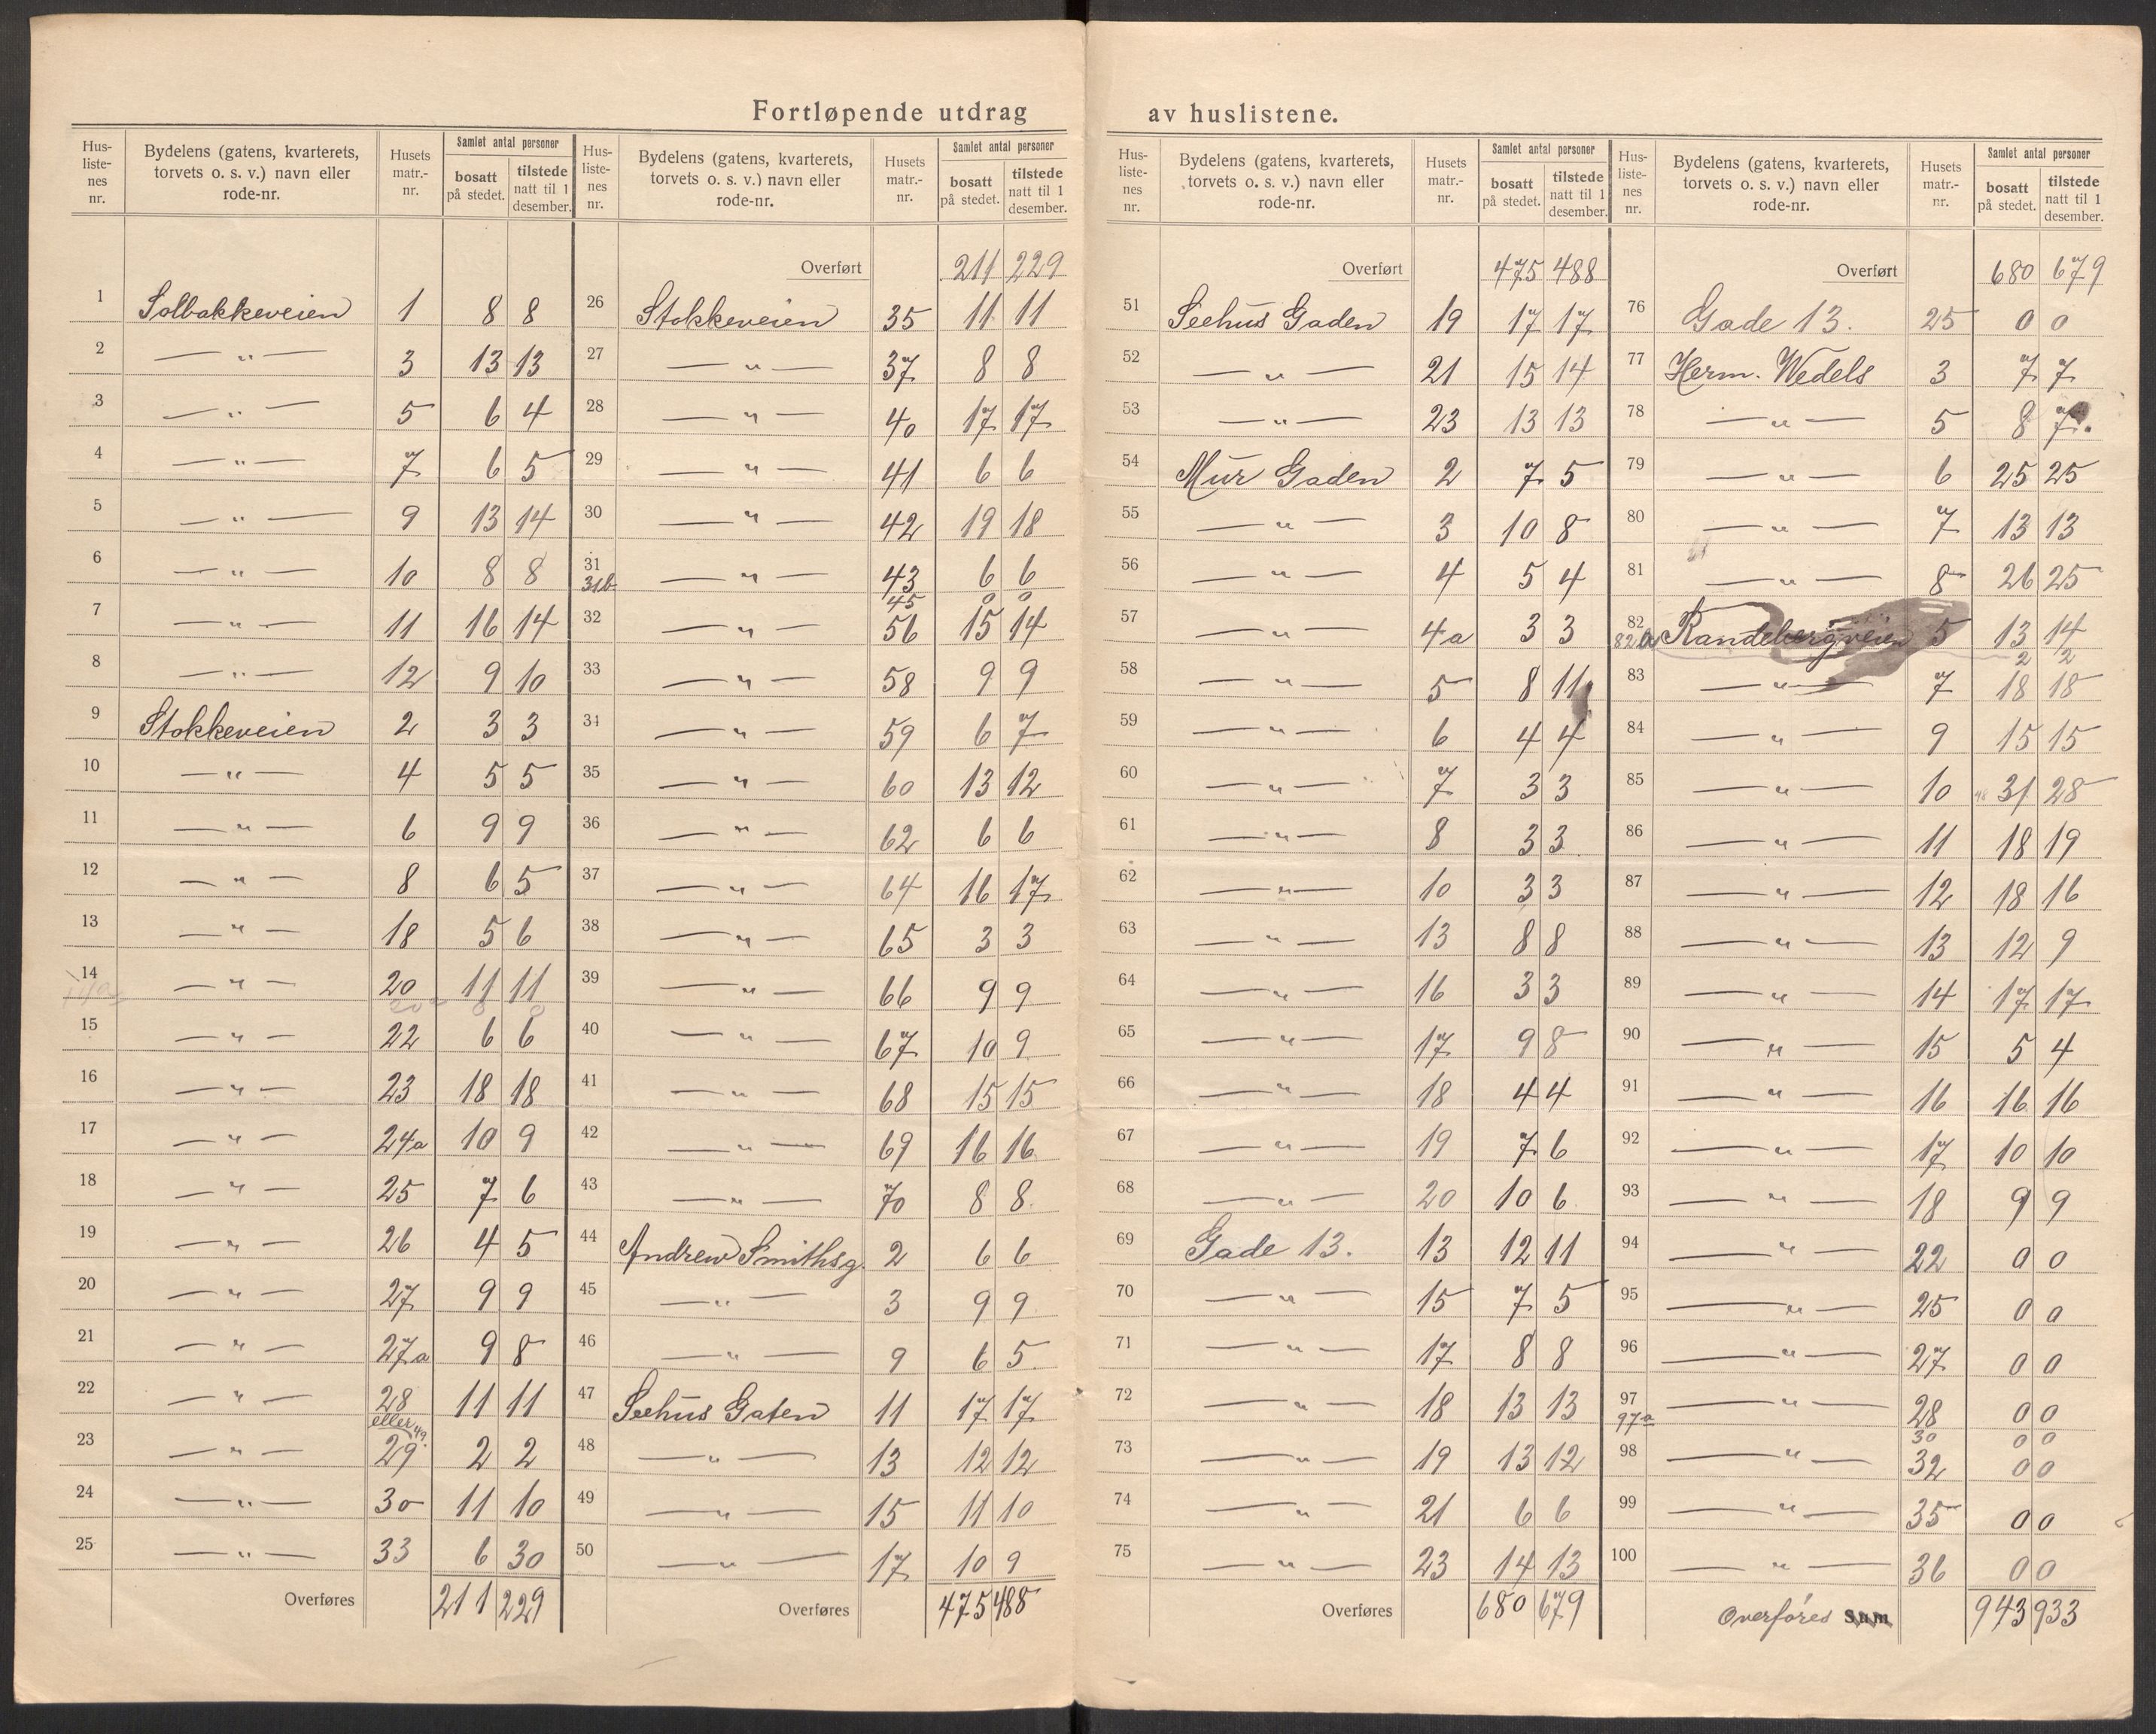 Fortløpende utdrag av huslistene.
Hus-listenes nr. | Bydelens (gatens, kvarterets, torvets o. s. v.) navn eller rode-nr. | Husets matr.-nr. | Samlet antal personer bosatt på stedet. | tilstede natt til 1 desember.
1 Solbakkeveien 1 8 8
2 — " — 3 13 13
3 — " — 5 6 4
4 — " — 7 6 5
5 — " — 9 13 14
6 — " — 10 8 8
7 — " — 11 16 14
8 — " — 12 9 10
9 Stokkeveien 2 3 3
10 — " — 4 5 5
11 — " — 6 9 9
12 — " — 8 6 5
13 — " — 18 5 6
14 — " — 20 11 11
15 — " — 22 6 6
16 — " — 23 18 18
17 — " — 24a 10 9
18 — " — 25 7 6
19 — " — 26 4 5
20 — " — 27 9 9
21 — " — 27a 9 8
22 — " — 28 11 11
eller 49.
23 — " — 29 2 2
24 — " — 30 11 10
25 — " — 33 6 30
Overføres 211 229
Hus-listenes nr. | Bydelens (gatens, kvarterets, torvets o. s. v.) navn eller rode-nr. | Husets matr.-nr. | Samlet antal personer bosatt på stedet. | tilstede natt til 1 desember.
Overført 211 229
26 Stokkeveien 35 11 11
27 — " — 37 8 8
28 — " — 40 17 17
29 — " — 41 6 6
30 — " — 42 19 18
31 — " — 43 6 6
31b 45 0 0
32 — " — 56 15 14
33 — " — 58 9 9
34 — " — 59 6 7
35 — " — 60 13 12
36 — " — 62 6 6
37 — " — 64 16 17
38 — " — 65 3 3
39 — " — 66 9 9
40 — " — 67 10 9
41 — " — 68 15 15
42 — " — 69 16 16
43 — " — 70 8 8
44 Andrew Smithsg. 2 6 6
45 — " — 3 9 9
46 — " — 9 6 5
47 Seehus Gaten 11 17 17
48 — " — 13 12 12
49 — " — 15 11 10
50 — " — 17 10 9
Overføres 475 488
Hus-listenes nr. | Bydelens (gatens, kvarterets, torvets o. s. v.) navn eller rode-nr. | Husets matr.-nr. | Samlet antal personer bosatt på stedet. | tilstede natt til 1 desember.
Overført 475 488
51 Seehus Gaden 19 17 17
52 — " — 21 15 14
53 — " — 23 13 13
54 Mur Gaden 2 7 5
55 — " — 3 10 8
56 — " — 4 5 4
57 — " — 4a 3 3
58 — " — 5 8 11
59 — " — 6 4 4
60 — " — 7 3 3
61 — " — 8 3 3
62 — " — 10 3 3
63 — " — 13 8 8
64 — " — 16 3 3
65 — " — 17 9 8
66 — " — 18 4 4
67 — " — 19 7 6
68 — " — 20 10 6
69 Gade 13. 13 12 11
70 — " — 15 7 5
71 — " — 17 8 8
72 — " — 18 13 13
73 — " — 19 13 12
74 — " — 21 6 6
75 — " — 23 14 13
Overføres 680 679
Hus-listenes nr. | Bydelens (gatens, kvarterets, torvets o. s. v.) navn eller rode-nr. | Husets matr.-nr. | Samlet antal personer bosatt på stedet. | tilstede natt til 1 desember.
Overført 680 679
76 Gade 13. 25 0 0
77 Herm. Wedels 3 7 7
78 — " — 5 8 7
79 — " — 6 25 25
80 — " — 7 13 13
81 — " — 8 26 25
82 Randebergveien 5 13 14
82a 2 2
83 — " — 7 18 18
84 — " — 9 15 15
85 — " — 10 31 28
86 — " — 11 18 19
87 — " — 12 18 16
88 — " — 13 12 9
89 — " — 14 17 17
90 — " — 15 5 4
91 — " — 16 16 16
92 — " — 17 10 10
93 — " — 18 9 9
94 — " — 22 0 0
95 — " — 25 0 0
96 — " — 27 0 0
97 — " — 28 0 0
97a 30 0 0
98 — " — 32 0 0
99 — " — 35 0 0
100 — " — 36 0 0
Overføres Sum 943 933